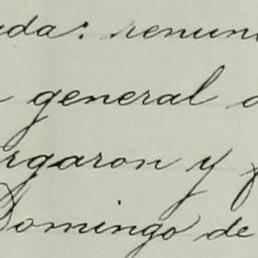 da: renun
general
garon y
Domingo de